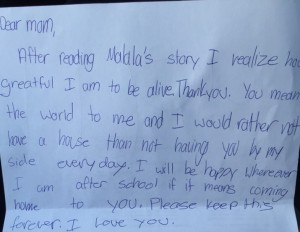 Dear mom,
After reading Malala's story I realize how
greatful I am to be alive. Thankyou. You mean
the world to me and I would rather not
have a house than not having you by my
side everyday. I will be happy whereever
I am after school if it means coming
home to you. Please keep this
forever. I love you.